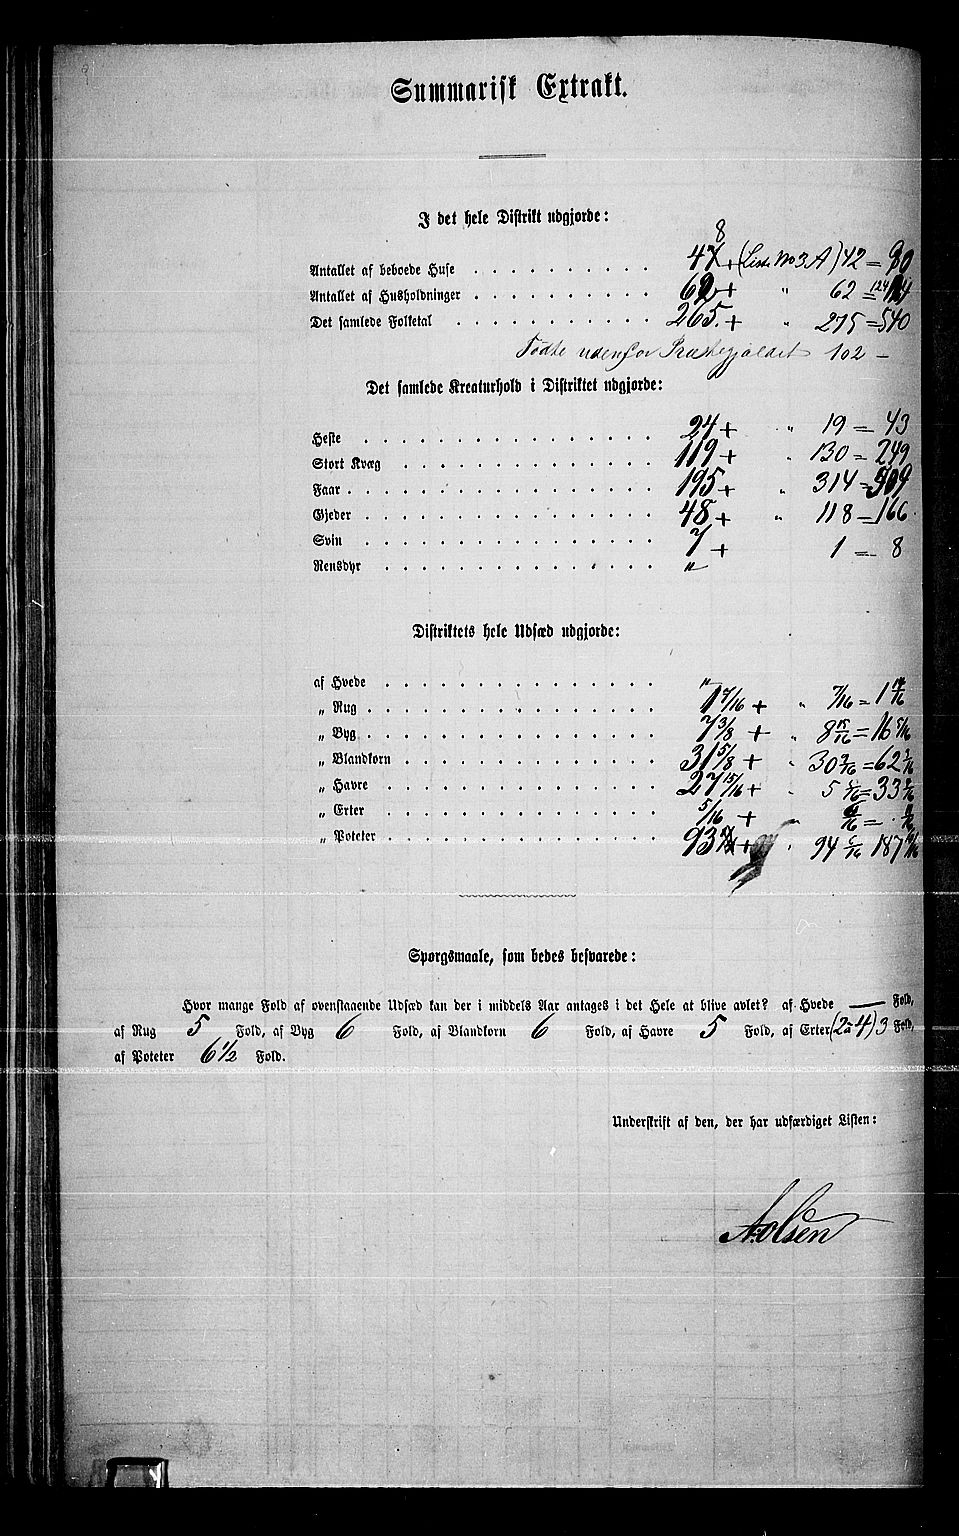 Summarisk Extrakt.
I det hele Distrikt udgjorde:
8
Antallet af beboede Huse . . . 47 + (Liste No 3 A) 42 = 90
Antallet af Husholdninger . . . 62 + " 62 = 124
Det samlede Folketal . . . 265. + " 275 = 540
Fødte udenfor Præstegjældet 102 –
Det samlede Kreaturhold i Distriktet udgjorde:
Heste . . . 24 + " 19 = 43
Stort Kvæg . . . 119 + " 130 = 249
Faar . . . 195 + " 314 = 509
Gjeder . . . 48 + " 118 = 166
Svin . . . 7 + 1 = 8
Rensdyr . . . "
Distriktets hele Udsæd udgjorde:
af Hvede . . . "
„ Rug . . . 1 7/16 + " 7/16 = 1 14/16
„ Byg . . . 7 3/8 + " 8 15/16 = 16 5/16
„ Blandkorn . . . 31 5/8 + " 30 9/16 = 62 3/16
„ Havre . . . 27 15/16 + " 5 = 33
„ Erter . . . 5/16 +
„ Poteter . . . 93 + " 94 187
Spørgsmaale, som bedes besvarede:
Hvor mange Fold af ovenstaaende Udsæd kan der i middels Aar antages i det Hele at blive avlet? af Hvede — Fold,
af Rug 5 Fold, af Byg 6 Fold, af Blandkorn 6 Fold, af Havre 5 Fold, af Erter (2 à 4) 3 Fold,
af Poteter 6 1/2 Fold.
Underskrift af den, der har udfærdiget Listen:
A. Olsen